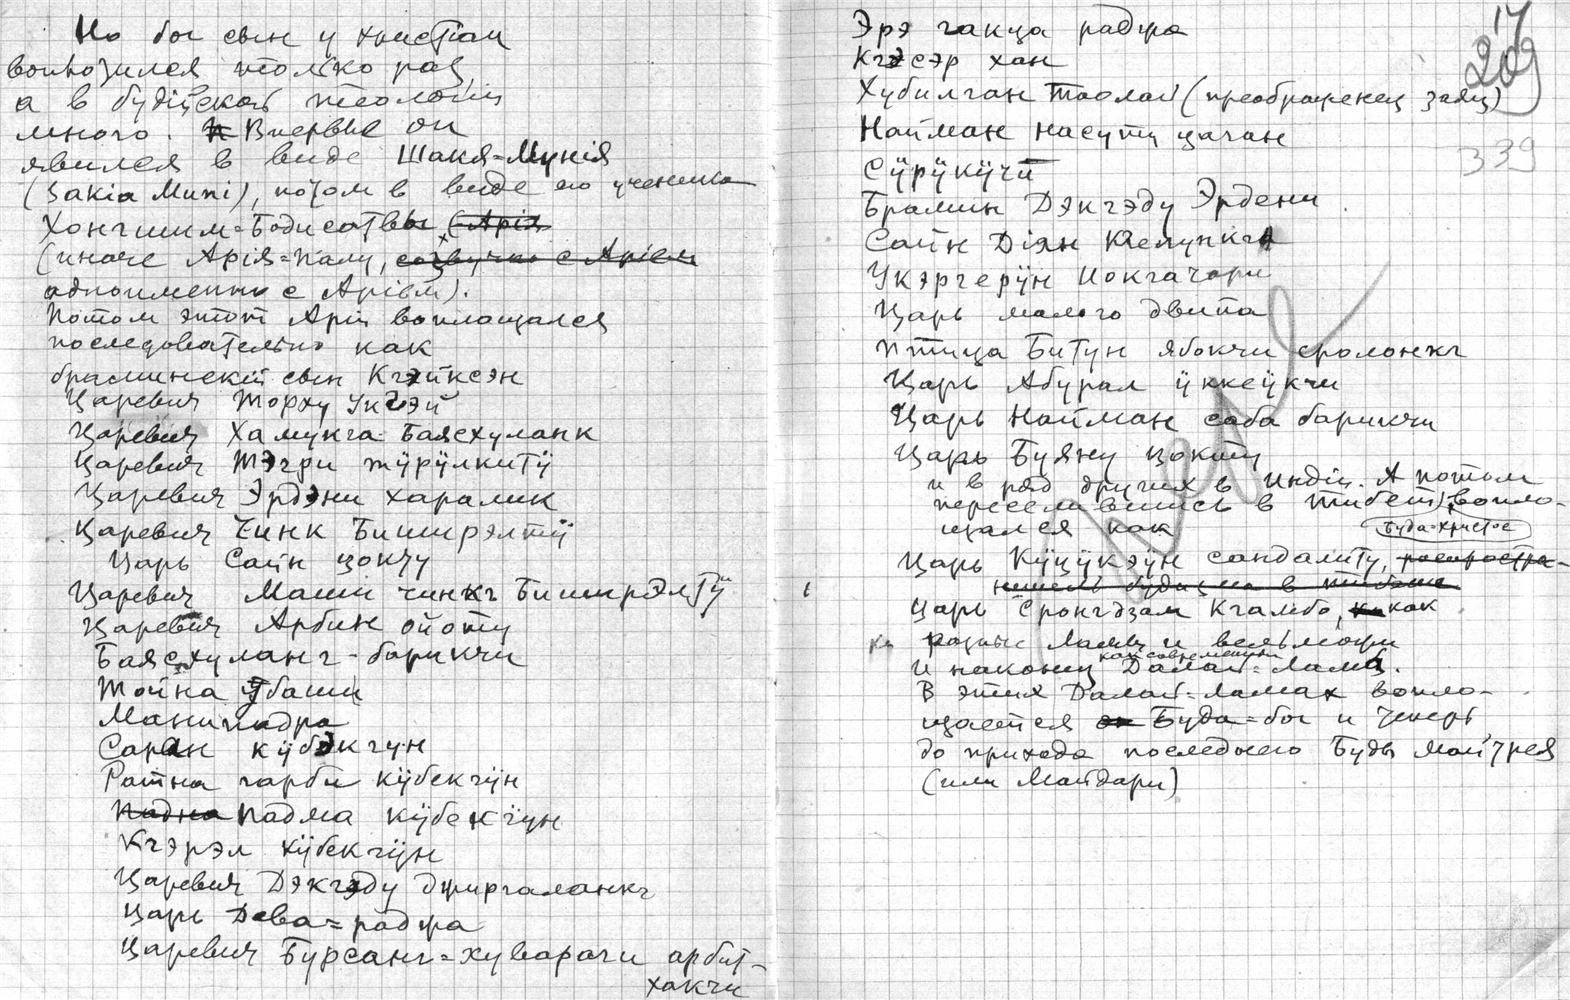 Но бог сын у христіан
воплозился только раз,
а в будійской теологіи
много. Впервые он
явился в виде Шакя-Мунія
(Закіа Муні), потом в виде его ученика
Хонгшим-Бодисатвы (Арія
(иначе Арія-Палу, созвучно с Аріем
одноименно с Арієм).
Потом этот Арій воплощался
последовательно как
браминскій сын Кгэйксэн
Царевич Торху Укгэй
Царевич Хамукга Баясхуланк
Царевич Тэгри тжүрүлкитү
Царевич Эрдэни харалик
Царевич Чинк Биширэлтү
Царь Сайн цокту
Царевич Маши чинкг Биширэлтў
Царевич Арбин ойоту
Баясхуланг-барикчи
Тойна Убаши
Манибадра
Саран кӱбэкгун
Ратна гарби кӱбекгӱн
Падна Падма кӱбекгӱн
Кгэрэл кӱбекгӱн
Царевич Дэкгэду джиргаланкг
Царь Дева-раджа
Царевич Бурсанг-хуварачи арбит-
хакчи
Эрэ гакца раджа
Кгэсэр хан
Хубилган Таолай (преображенец заяц)
Найман насуту цаган
Сӱрӱкӱчи
Брамин Дэкгэду Эрдени
Сайн Діян Келункгэ
Укэргерӱн Иокгачари
Царь малого двипа
птица Битун ябокчи сролонкг
Царь Абурал ӱккеӱкчи
Царь Найман саба барикчи
Царь Буяну цокту
и в ряд других в Индіи. А потом
переселившись в Тибет, вопло-
щался как
Буда-Христос
Царь Кӱцӱкэӱн сандалиту, распростра-
нитель будизма в Тибете
Царь Сронгдзам Кгамбо, как
разные ламы и вельможи
как современники
и наконец Далай-Лама.
В этих Далай-Ламах вопло-
щается Буда-бог и теперь
до прихода последнего Буды Майтрея
(или Майдари)
17
209
339